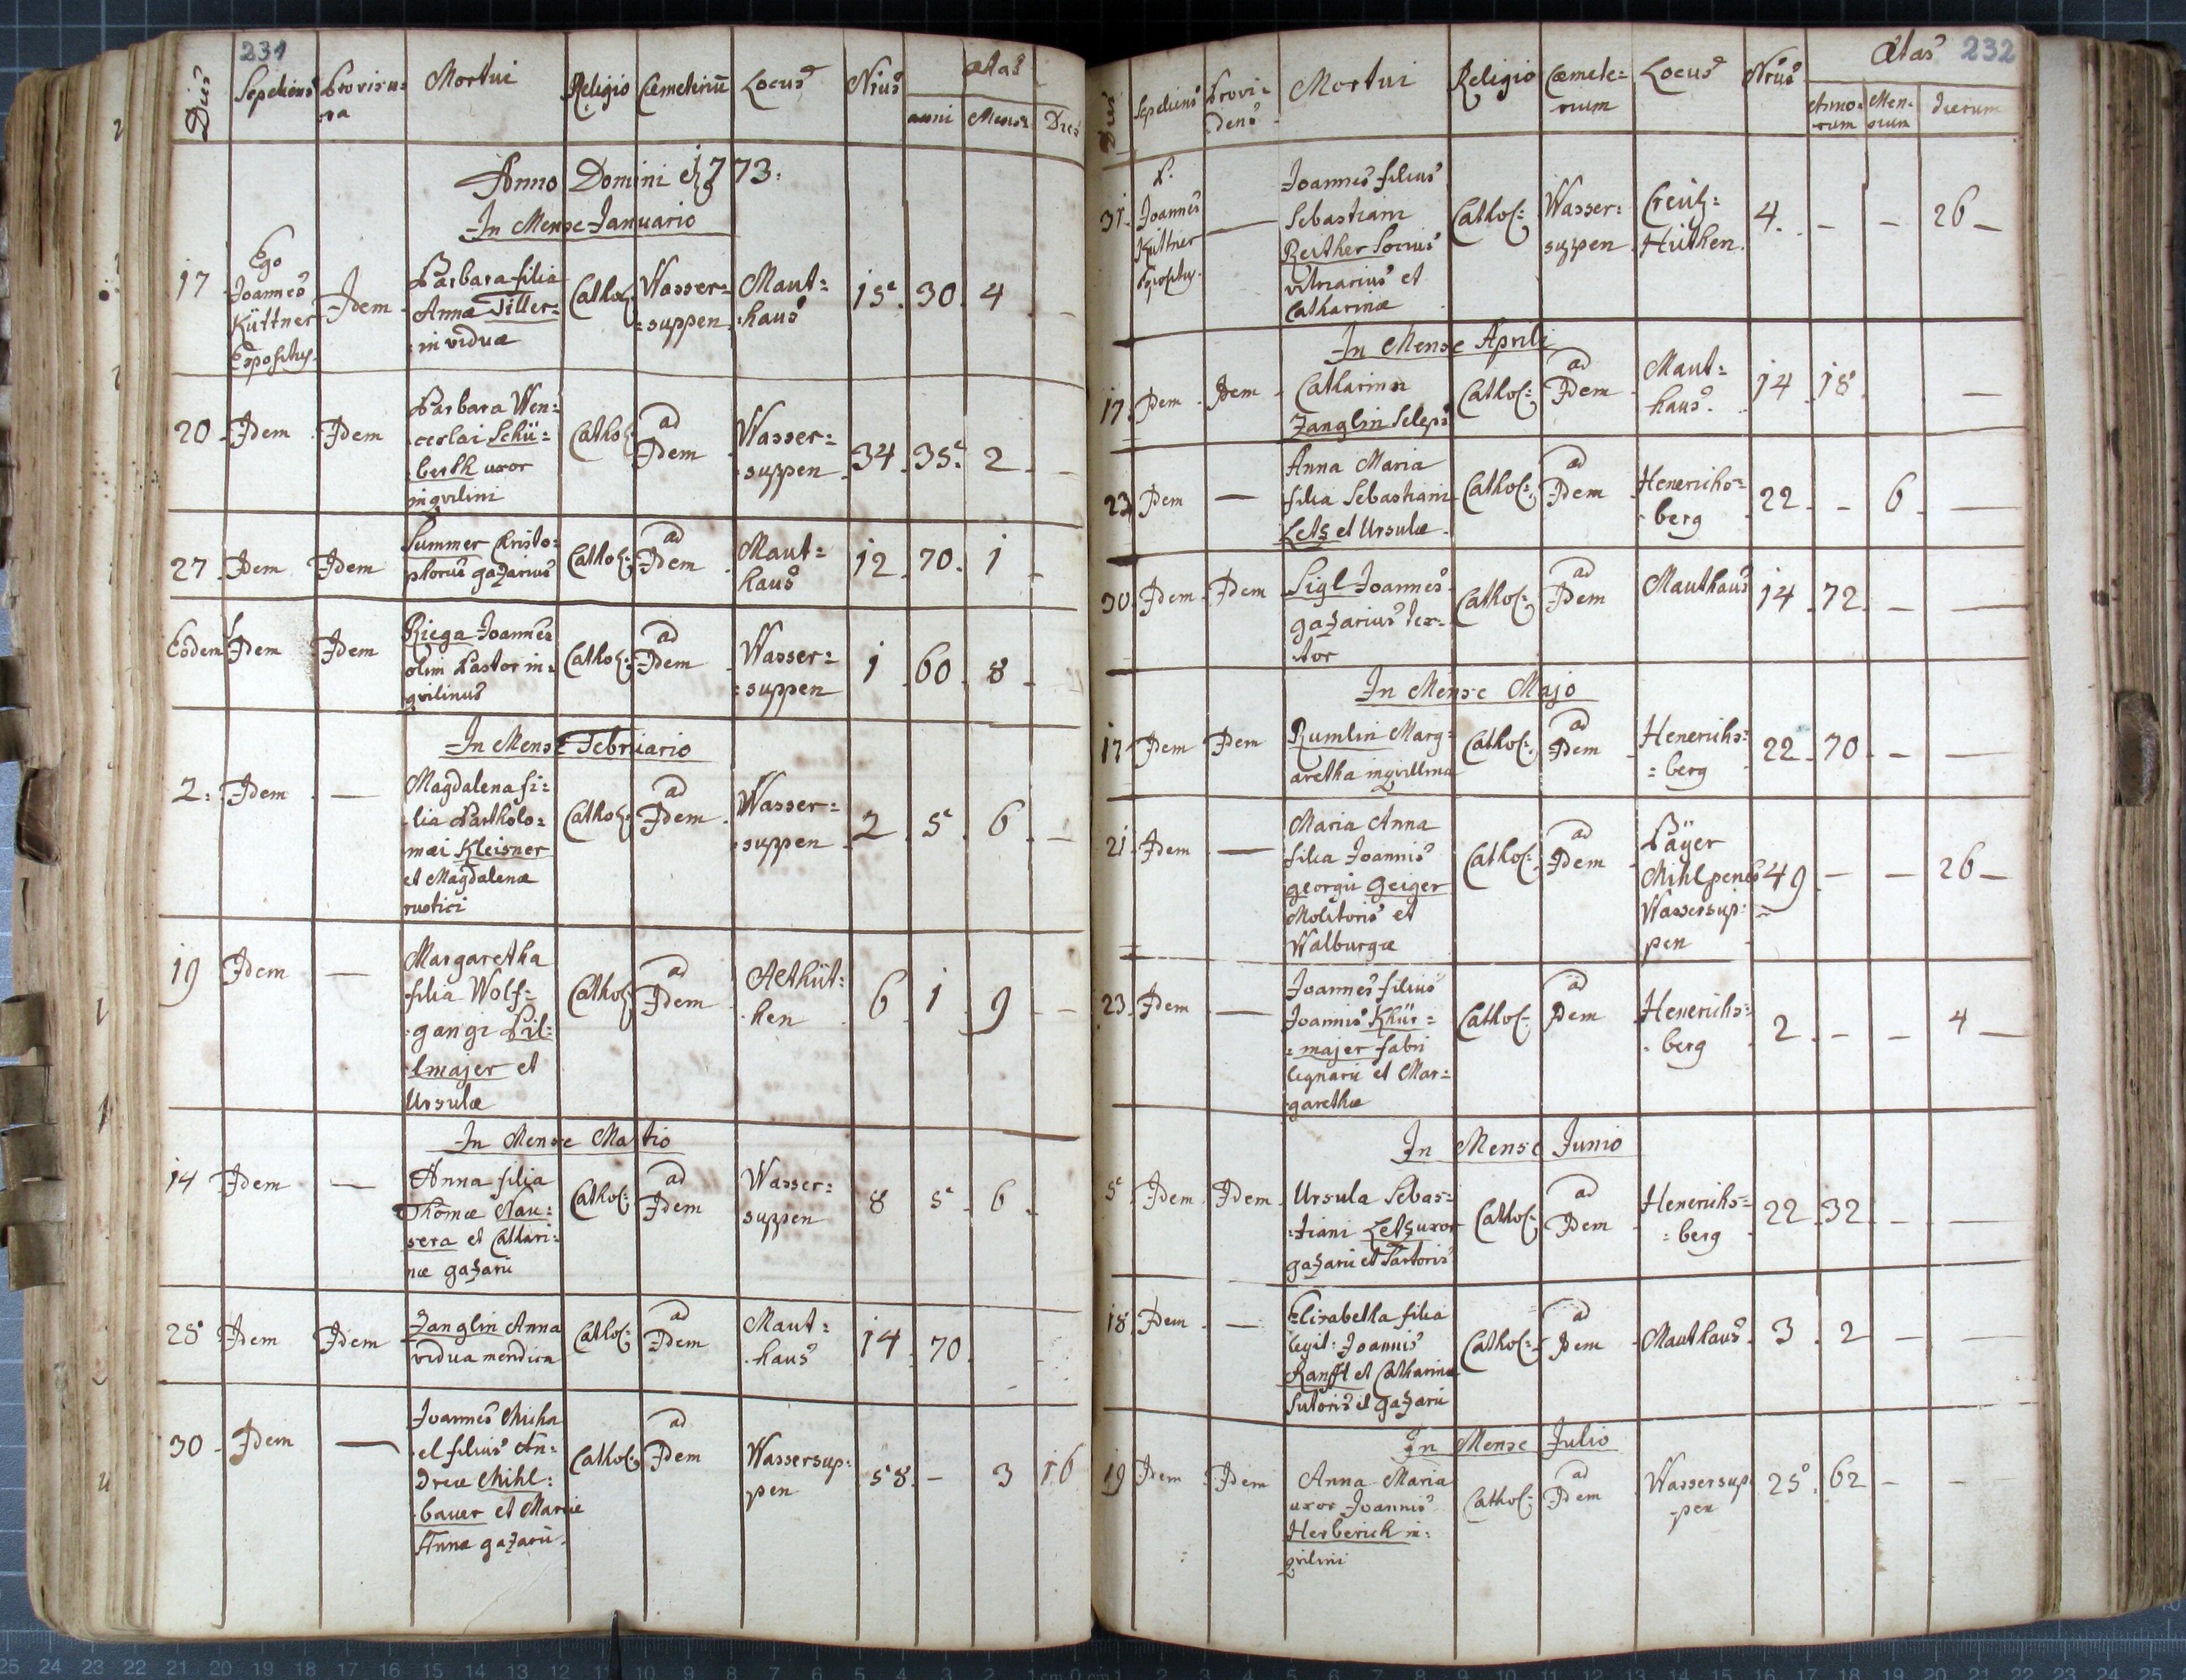 231
Dies Sepeliens Provisura Mortui Religio Cæmeteriũ Locus Nrus ætas
anni Mens: Dies
Anno Domini 1773.
In Mense Januario
17 Ego Joannes Küttner Expositus. Idem Barbara filia Annæ Tiller=in viduæ Cathol: Wasser=suppen Maut=haus 15. 30. 4 -
20 Idem Idem Barbara Wen=ceslai Schü=berth uxor inqvilini Cathol: ad Idem Wasser=suppen 34 35. 2 -
27 Idem Idem Summer Cristo=phorus gazarius Cathol: ad Idem Maut=haus 12 70. 1 -
Eodem Idem Idem Riega Joannes olim Pastor in=qvilinus Cathol: ad Idem Wasser=suppen 1 60 8 -
In Mense Februario
2: Idem — Magdalena fi=lia Bartholo=mæi Kleisner et Magdalenæ rustici Cathol: ad Idem Wasser=suppen 2 5. 6 -
19 Idem — Margaretha filia Wolf=gangi Pil=lmajer et Ursulæ Cathol: ad Idem Althüt=hen 6 1 9 -
In Mense Martio
14 Idem — Anna filia Thomæ Nau=sera et Cathari=næ gazarii Cathol: ad Idem Wasser=suppen 8 5 6
25 Idem Idem Zanglin Anna vidua mendica Cathol: ad Idem Maut=haus 14 70.
30 Idem — Joannes Micha el filius An=dreæ Mihl=bauer et Mariæ Annæ gazarii. Cathol: ad Idem Wassersup=pen 58 - 3 16
232
Dies Sepeliens Provi=dens Mortui Religio Cæmete=rium Locus Nrus Ætas
Anno=rum Men=sium dierum
31. P. Joannes Küttner Expositus. — Joannes filius Sebastiani Reither Socius vitriarius et Catharinæ Cathol: Wasser=suppen Creutz=Hüthen. 4. - - 26 -
In Mense Aprili
17. Idem Idem Catharina Zanglin Cathol: ad Idem Maut=haus. 14 18 —
23 Idem — Anna Maria filia Sebastiani Letz et Ursulæ Cathol: ad Idem Henerichs=berg 22 - 6 —
30 Idem Idem Sigl Joannes gazarius tex=tor Cathol: ad Idem Mauthaus 14 72 - —
In Mense Majo
17 Idem Idem Rumlin Marg=aretha inqvillina Cathol: ad Idem Henerichs=berg 22 70 - —
21 Idem — Maria Anna filia Joannis georgii Geiger Molitoris et Walburgæ Cathol: ad Idem Päyer Mihl penes Wassersup=pen 49 - - 26 -
23 Idem — Joannes filius Joannis Khür=majer fabri lignarii et Mar=garethæ Cathol: ad Idem Henerichs=berg 2 - - 4 —
In Mense Junio
5 Idem Idem Ursula Sebas=tiani Letz uxor gazarii et Sartoris Cathol: ad Idem Henerichs=berg 22 32 - —
18 Idem — Elisabetha filia legit: Joannis Ranfft et Catharinæ Sutoris et gazarii Cathol: ad Idem Mauthaus 3 2 - —
In Mense Julio
19 Idem Idem Anna Maria uxor Joannis Herberich in=qvilini Cathol: ad Idem Wassersup=pen 25 62 - -